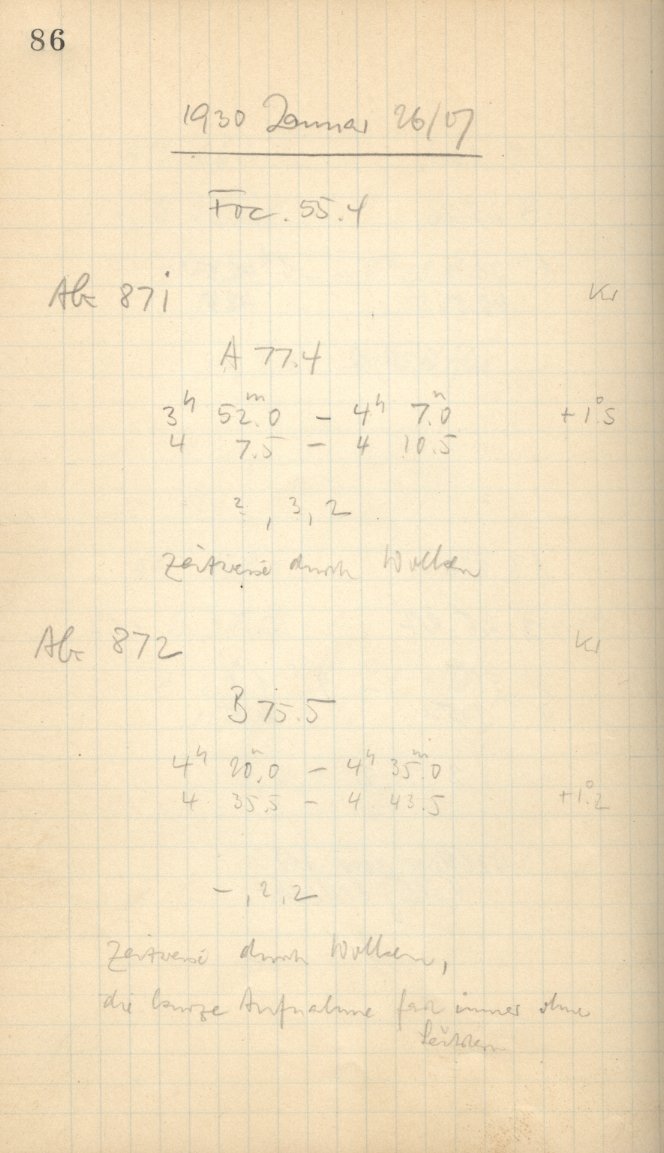 86
1930 Januar 26/27
Foc. 55.4
871 Kr
A 77.4
3h 52m.0 – 4h 7m.0 +1°.5
4 7.5 – 4 10.5
2, 3, 2
Zeitweise durch Wolken
872 Kr
B 75.5
4h 20m.0 – 4h 35m.0
4 35.5 – 4 43.5 +1°.2
–, 2, 2
Zeitweise durch Wolken,
die kurze Aufnahme fast immer ohne
Leitstern